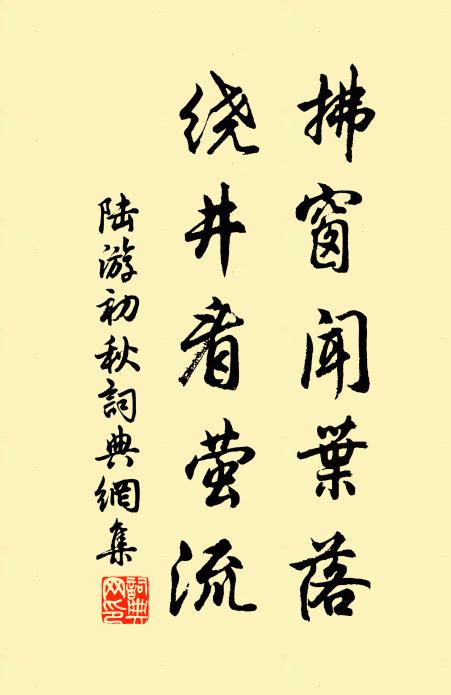 拂窗闻葉落
绕井看萤流
陆游初秋詞典網集
詞典网印